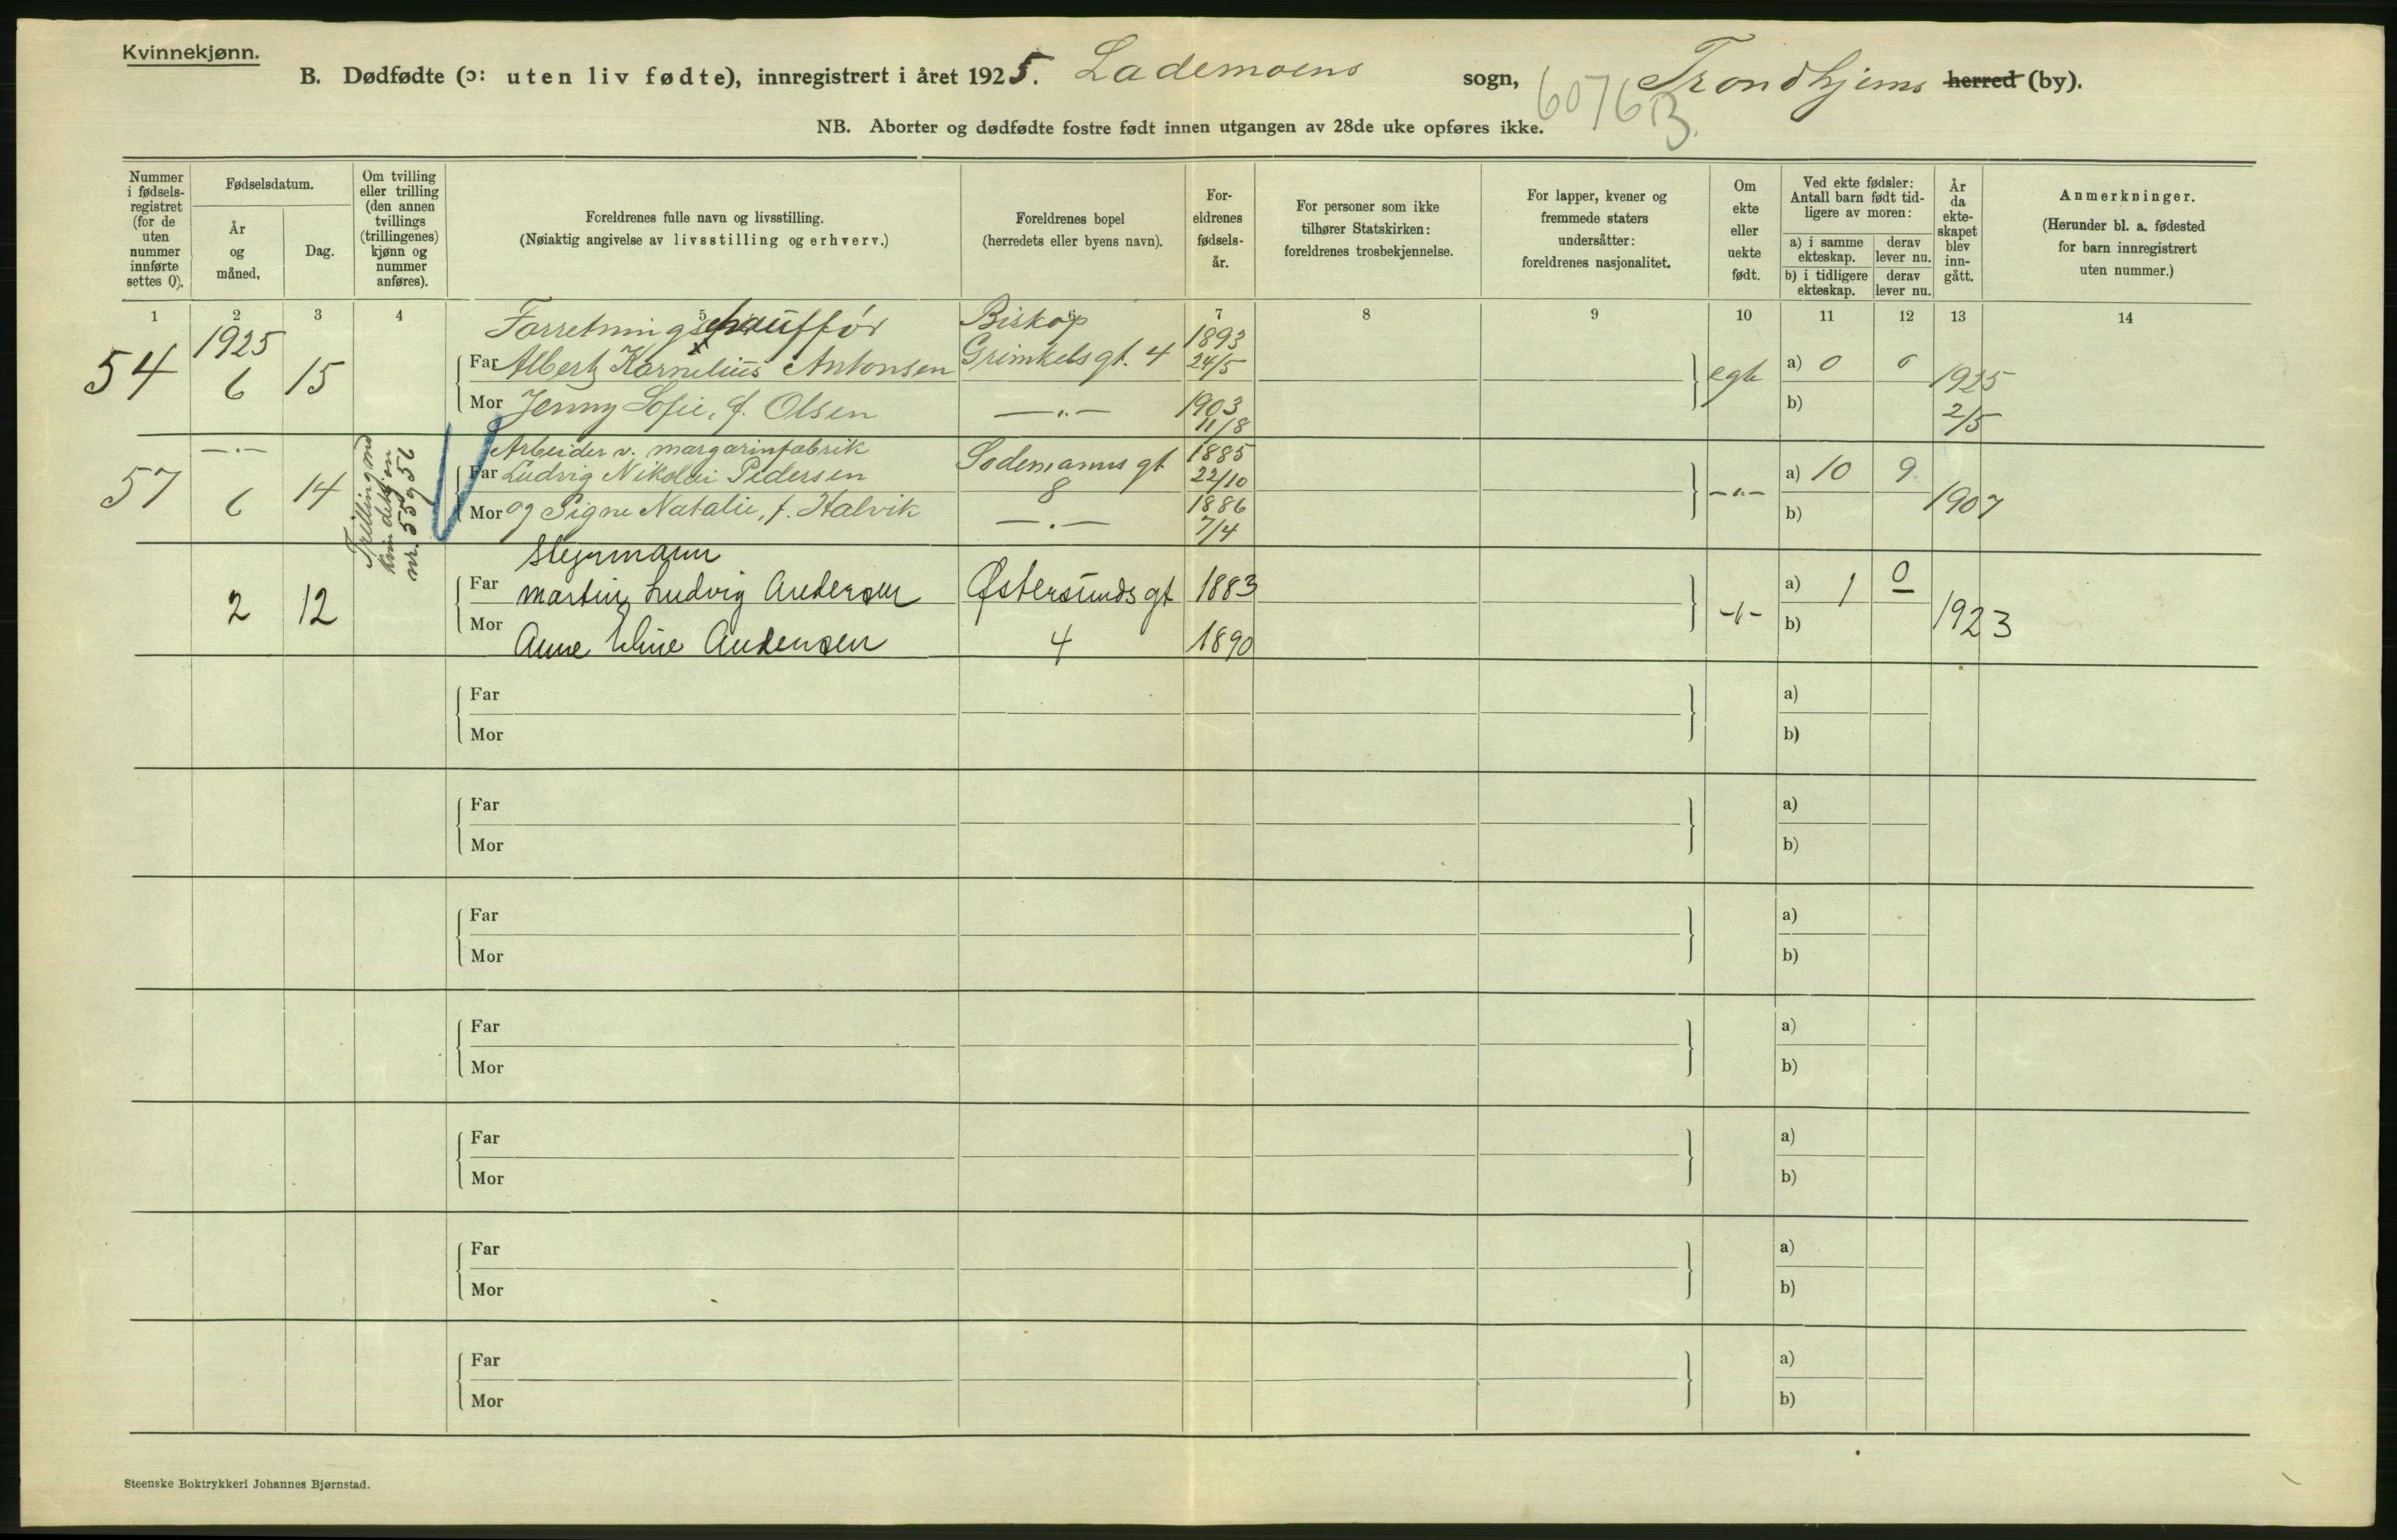 Kvinnekjønn.
B. Dødfødte (ɔ: uten liv fødte), innregistrert i året 1925. Lademoens sogn, Trondhjems herred (by).
6076 B.
NB. Aborter og dødfødte fostre født innen utgangen av 28de uke opføres ikke.
Nummer i fødsels- registret (for de uten nummer innførte settes 0).
Fødselsdatum.
År og måned.
Dag.
Om tvilling eller trilling (den annen tvillings (trillingenes) kjønn og nummer anføres).
Foreldrenes fulle navn og livsstilling.
(Nøiaktig angivelse av livsstilling og erhverv.)
Foreldrenes bopel
(herredets eller byens navn).
For- eldrenes fødsels- år.
For personer som ikke tilhører Statskirken: foreldrenes trosbekjennelse.
For lapper, kvener og fremmede staters undersåtter: foreldrenes nasjonalitet.
Om ekte eller uekte født.
Ved ekte fødsler: Antall barn født tid- ligere av moren:
a) i samme ekteskap. derav lever nu.
b) i tidligere ekteskap. derav lever nu.
År da ekte- skapet blev inn- gått.
Anmerkninger.
(Herunder bl. a. fødested for barn innregistrert uten nummer.)
1 2 3 4 5 6 7 8 9 10 11 12 13 14
Forretningschauffør Biskop 1893
54 1925 6 15 Far Albert Kornelius Antonsen Grimkelsgt. 4 24/5 egte a) 0 0 1925
Mor Jenny Sofie, f. Olsen —„— 1903 11/8 b) 2/5
—„— Arbeider v. margarinfabrik 1885
57 6 14 Far Ludvig Nikolai Pedersen Sodemanns gt 8 22/10 —„— a) 10 9 1907
Mor og Signe Natalie, f. Halvik —„— 1886 7/4 b)
Trilling med
nr. 55 og 56
Styrmann
2 12 Far Martin Ludvig Andersen Østersunds gt 1883 —„— a) 1 0 1923
Mor Anne Eline Andersen 4 1890 b)
Far a)
Mor b)
Far a)
Mor b)
Far a)
Mor b)
Far a)
Mor b)
Far a)
Mor b)
Far a)
Mor b)
Far a)
Mor b)
Steenske Boktrykkeri Johannes Bjørnstad.